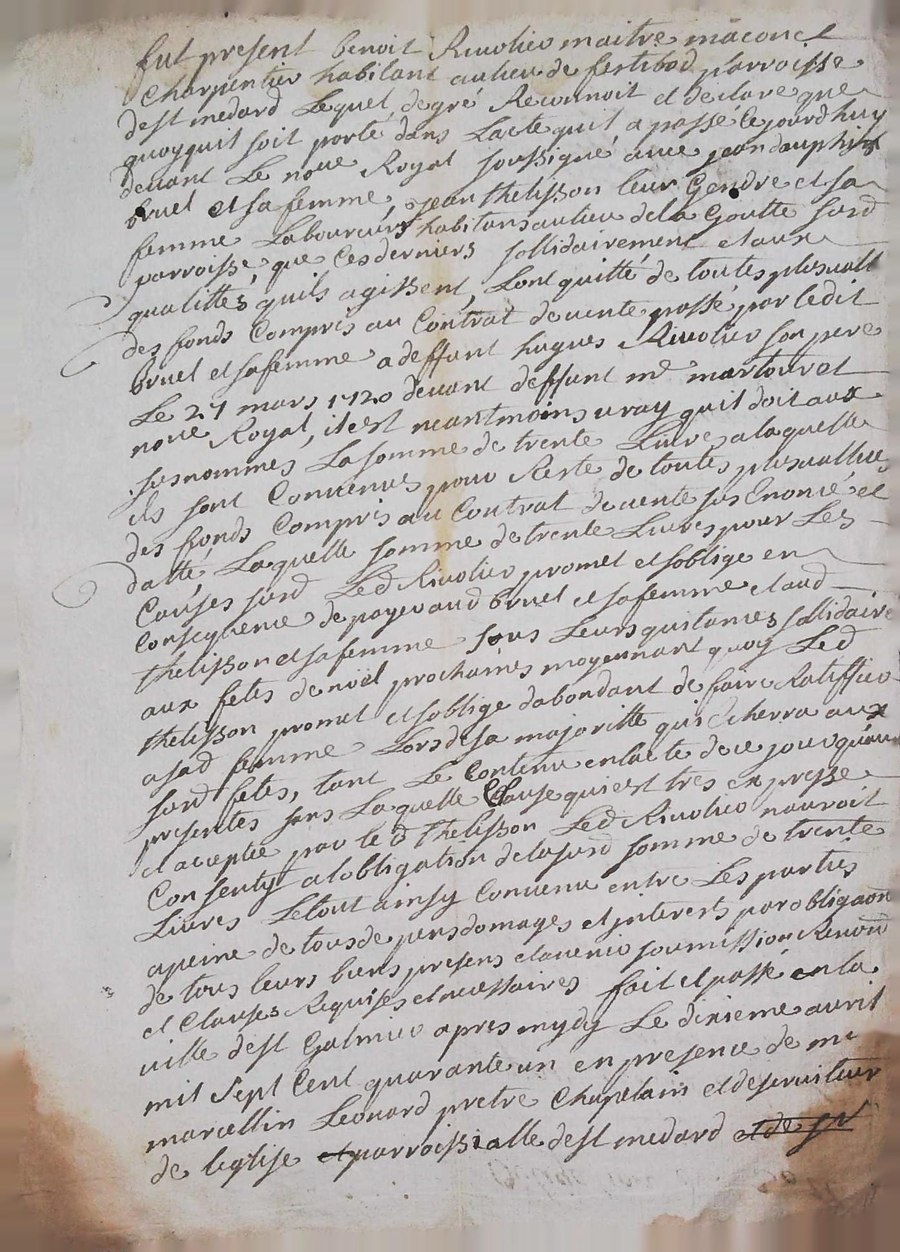 fut present benoit Rivolier maitre macon et
Charpentier habitant au lieu de festibod parroisse
de st medard Lequel de gré Reconnoit et declare que
quoyquil soit porté dans Lacte quil a passé ce jourdhuy
devant Le nore Royal soussigné avec jean dauphin
bruel et sa femme, jean thelisson leur Gendre et sa
femme Laboureurs habitans au lieu de la Goutte surd
parroisse, que ces derniers sollidairement et aux
qualittés quils agissent, Lont quitté de toutes plusvall
des fonds Compris au Contrat de vente passé par ledit
bruel et sa femme a deffunt hugues Rivolier son pere
Le 27 mars 1720 devant deffunt me martouret
nore Royal, il est neantmoins vray quil doit aux
susnommés La somme de trente Livres a laquelle
ils sont Convenus pour Reste de toutes plusvallues
des fonds Compris au Contrat de vente sus Enoncé et
datté, Laquelle somme de trente Livres pour Les
Causes surd Led Rivolier promet et soblige en
Consequence de payer aud bruel et sa femme et aud
thelisson et sa femme sous Leurs quitances sollidaire
aux fetes de noël prochaines moyennant quoy Led
thelisson promet et soblige dabondant de faire Ratiffier
a sad femme Lors de sa majoritté qui Echerra aux
surd fetes, tant Le Contenu en lacte de ce jour quaux
presentes sans Laquelle Clause qui est tres expresse
et aceptée par le d thelisson Led Rivolier nauroit
Consenty a lobligation de la surd somme de trente
Livres Le tout ainsy Convenu entre Les parties
a peine de tous depens domages et interets par obligaon
de tous leurs biens presens et avenir soumission Renond
et Clauses Requises et necessaires fait et passé en la
ville de st Galmier apres mydy Le dixieme avril
mil sept Cent quarante un en presence de me
marcellin Leonard pretre Chapelain et deserviteur
de leglise et parroissialle de st medard et de sr